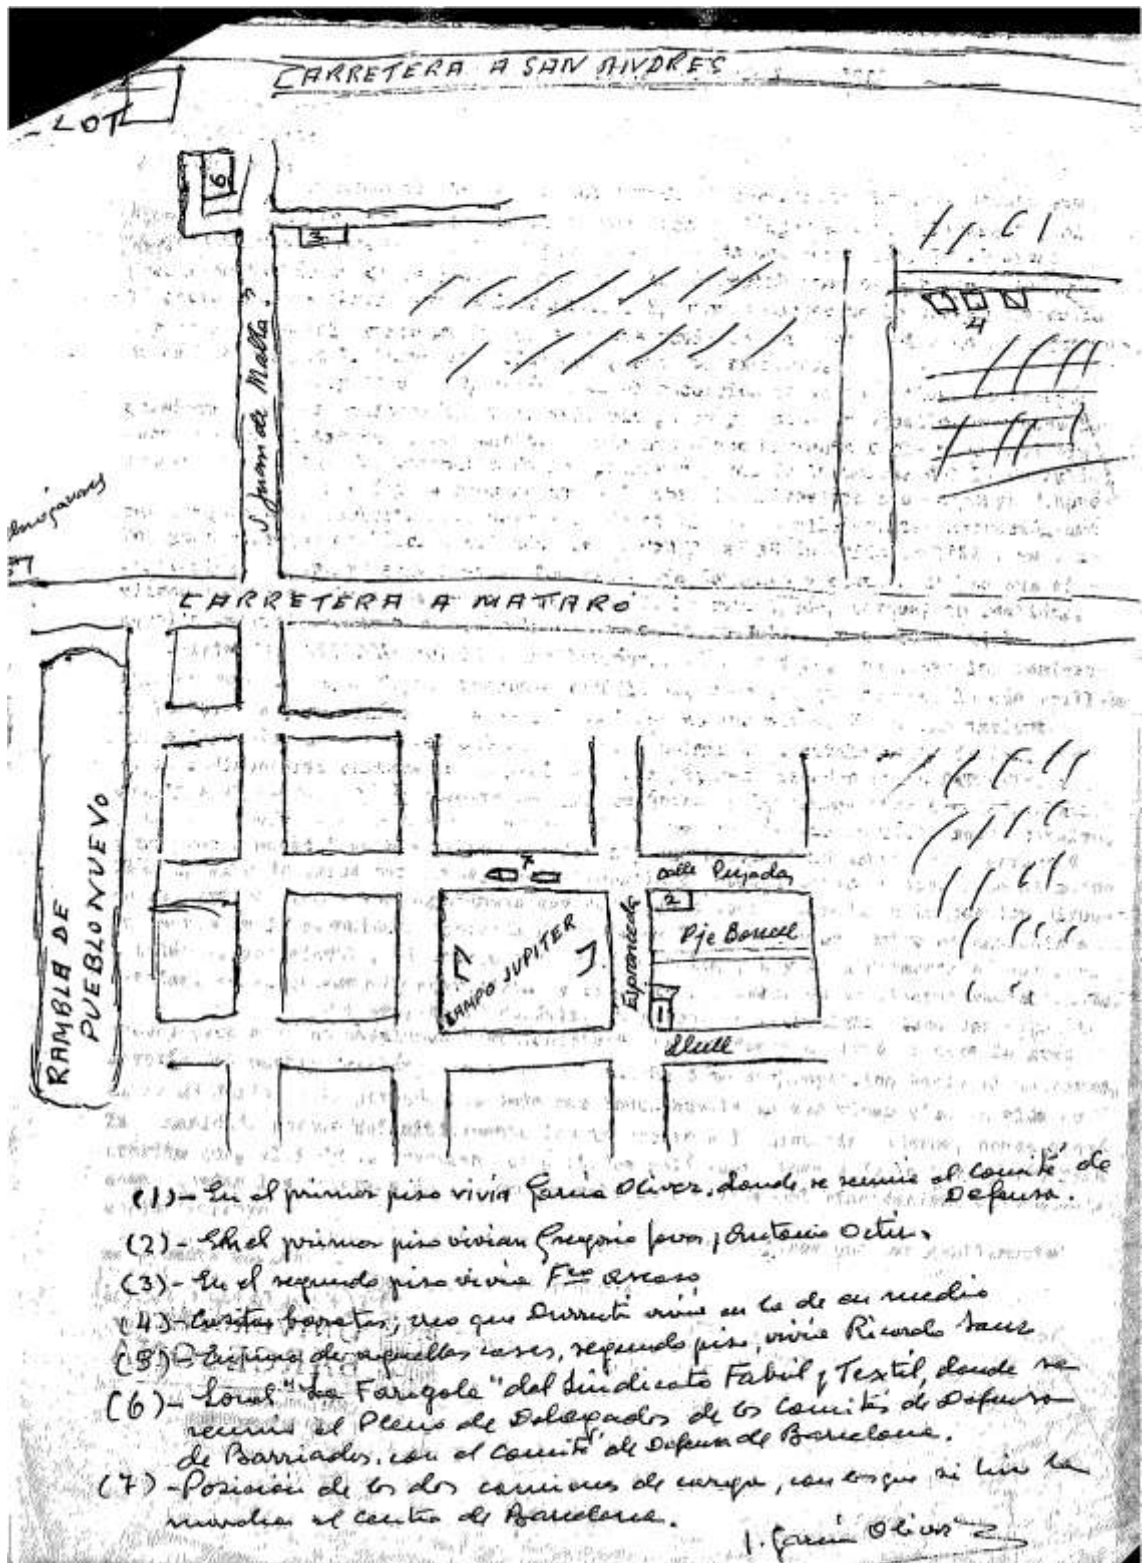 CARRETERA A SAN ANDRES
LOT
6
3
4
S. Juan de Malta.
CARRETERA A MATARÓ
RAMBLA DE
PUEBLO NUEVO
calle Pujadas
2
Pje Borrell
CAMPO JUPITER
Espronceda
1
Llull
(1)- En el primer piso vivía García Oliver, donde se reunía el Comité de
Defensa.
(2)- En el primer piso vivían Gregorio Jover y Antonio Ortiz.
(3)- En el segundo piso vivía Fco Ascaso
(4)- Casitas baratas, creo que Durruti vivía en la de en medio
(5)- Encima de aquellas casas, segundo piso, vivía Ricardo Sanz
(6)- Local "La Farigola" del Sindicato Fabril y Textil, donde se
reunía el Pleno de Delegados de los Comités de Defensa
de Barriadas, con el Comité de Defensa de Barcelona.
(7)- Posición de los dos camiones de carga, con los que se hizo la
marcha al centro de Barcelona.
J. García Oliver